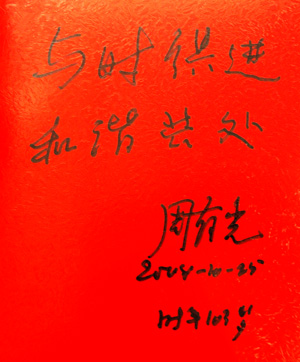 与时俱进
和谐共处
周有光
2008-10-25
时年103岁